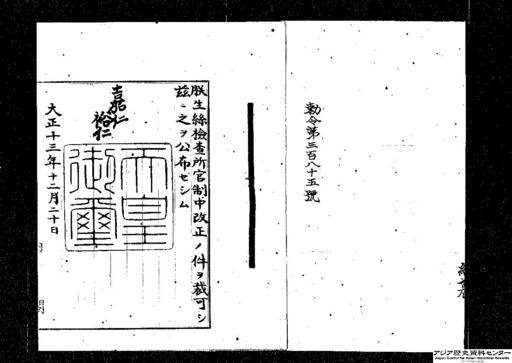 勅令第三百八十五號
朕生絲檢査所官制中改正ノ件ヲ裁可シ
玆ニ之ヲ公布セシム
嘉仁
裕仁
天皇
御璽
大正十三年十二月二十日
閣
アジア歴史資料センター
Japan Center for Asian Historical Records